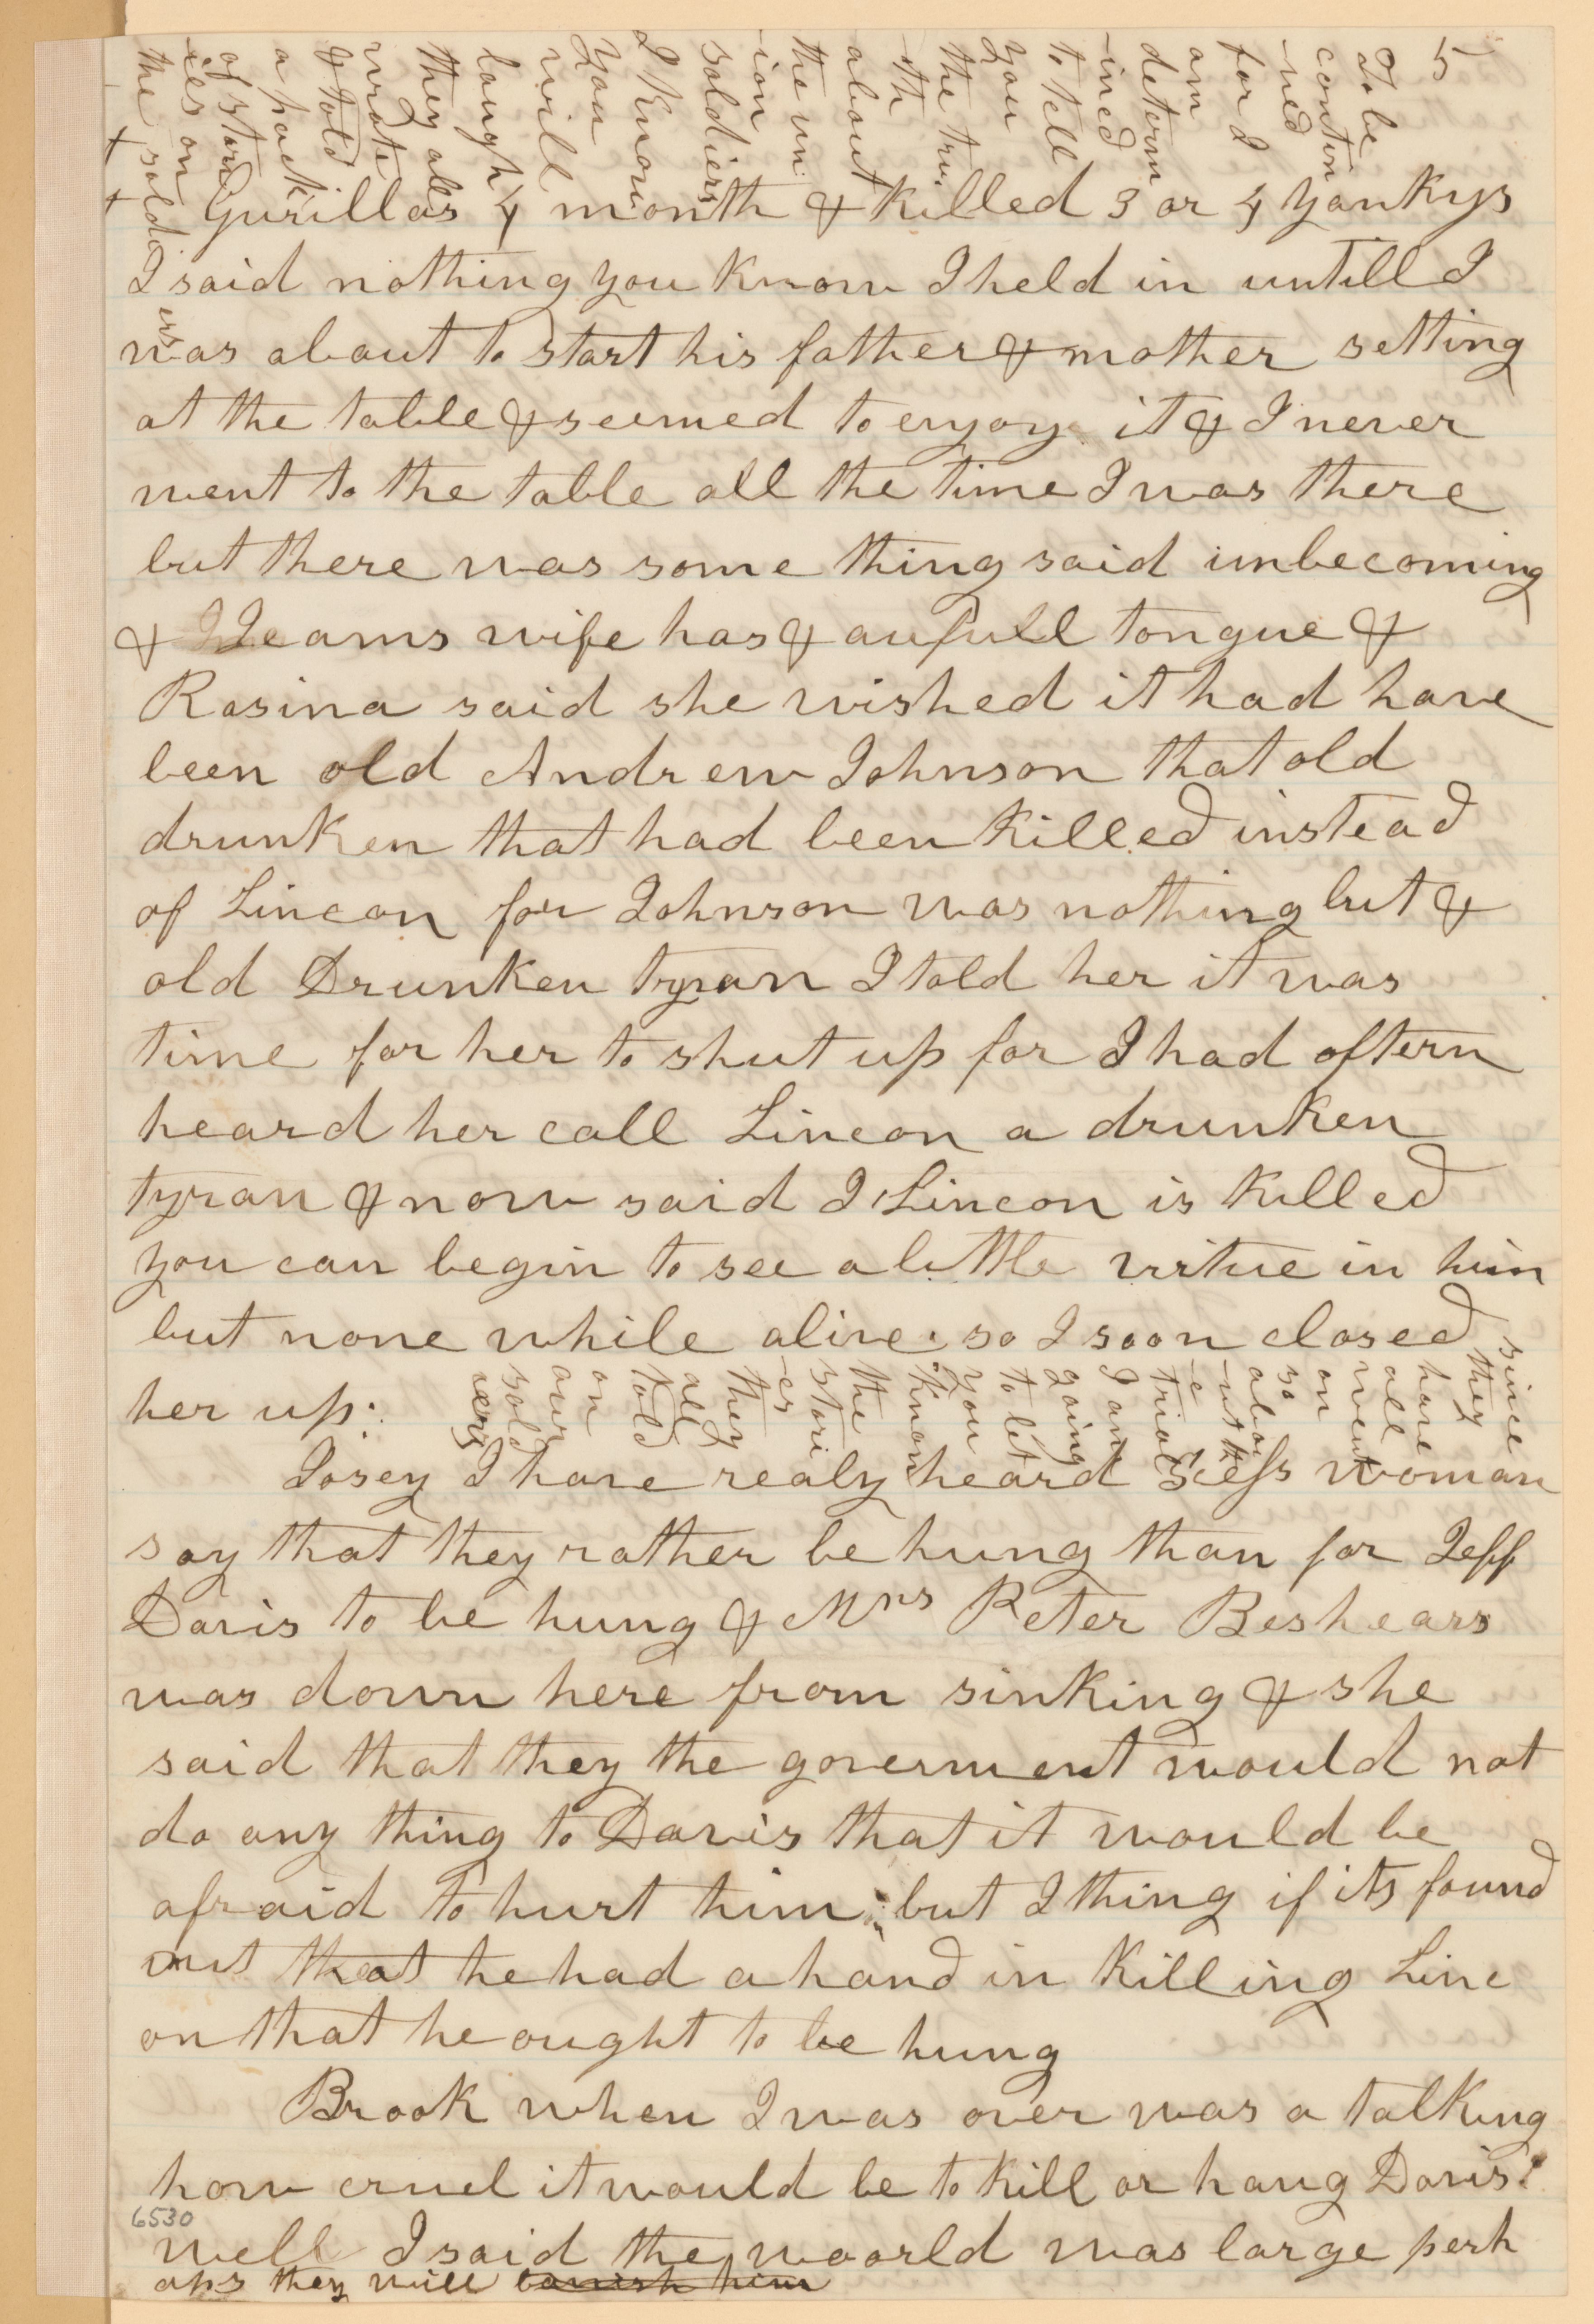 5
Gurillas 4 month & killed 3 or 4 yankys
I said nothing you know I held in untill I
was about to start his father & mother setting
at the table & seemed to enjoy it & I never
went to the table all the time I was there
but there was some thing said unbecoming
& wife has & aufull tongue &
Rosina said she wished it had have
been old Andrew Johnson that old
drunken that had been killed instead
of Lincon for Johnson was nothing but &
old Drunken tyran I told her it was
time for her to shut up for I had oftern
heard her call Lincon a drunken
tyran & now said I Lincon is killed
you can begin to see a little virtue in him
but none while alive. so I soon closed
her up:
Josey I have realy heard Scesh woman
say that they rather be hung than for Jeff
Davis to be hung & Mrs Peter Beshears
was down here from sinking & she
said that they the goverment would not
do any thing to Davis that it would be
afraid to hurt him: but I thing if its found
out that he had a hand in killing Linc
on that he ought to be hung
Brook when I was over was a talking
how cruel it would be to kill or hang Davis!
well I said the woorld was large perh
aps they will banish him
6530
To be
contin
-ued
for I
am
determ
-ined
to tell
you
the tru
-th
about
the un
-ion
soldiers
I know
you
will
laugh
they all
wrote
& told
a pack
of stor
-ies on
the soldi
ers
since
they
have
all
went
on
so
abo
-ut th
-e
trial
I am
going
to let
you
know
the
stori
-es
they
all
told
on
our
sold
iers